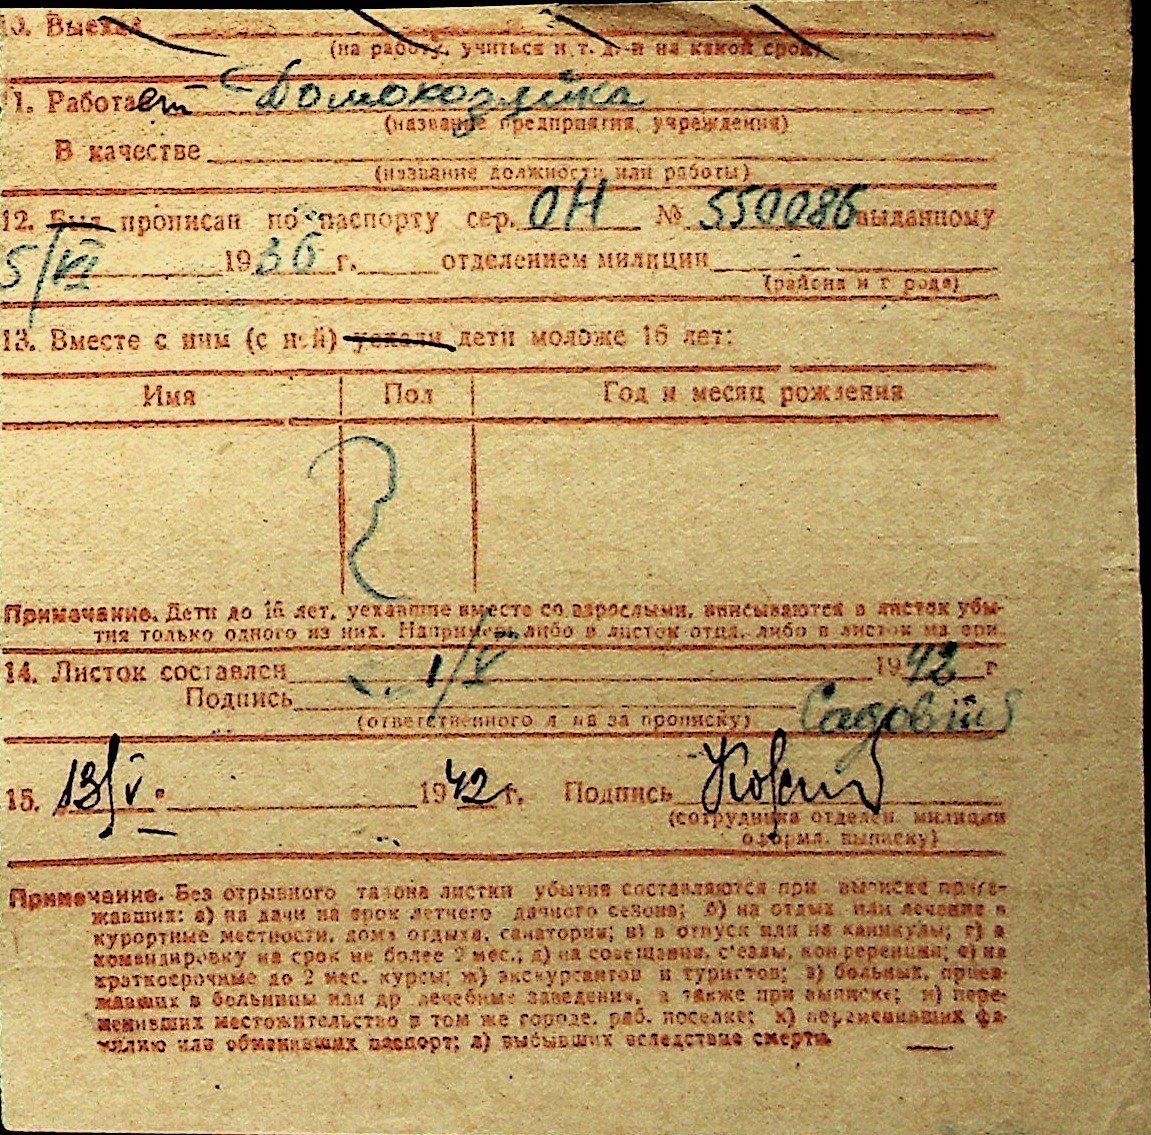 10. Выехал
(на работу, учиться и т. д. и на какой срок)
11. Работает Домохозяйка
(название предприятия, учреждения)
В качестве
(название должности или работы)
12. Был прописан по паспорту сер. ОН № 550086 выданному
5/VI 1936 г. отделением милиции
(района и города)
13. Вместе с ним (с ней) уехали дети моложе 16 лет:
Имя Пол Год и месяц рождения
Примечание. Дети до 16 лет, уехавшие вместе со взрослыми, вписываются в листок убы-
тия только одного из них. Например либо в листок отца, либо в листок матери.
14. Листок составлен 1/V 1942 г
Подпись
(ответственного лица за прописку)
15. 13/V 1942 г. Подпись
(сотрудника отделен. милиции
оформл. выписку)
Примечание. Без отрывного талона листки убытия составляются при выписке приез-
жавших: а) на дачи на срок летнего дачного сезона; б) на отдых или лечение в
курортные местности, дома отдыха, санатории; в) в отпуск или на каникулы; г) в
командировку на срок не более 2 мес.; д) на совещания, с'езды, конференции; е) на
краткосрочные до 2 мес. курсы; ж) экскурсантов и туристов; з) больных, приез-
жавших в больницы или др лечебные заведения, а также при выписке; и) пере-
менивших местожительство в том же городе, раб. поселке; к) переменивших фа-
милию или обменивших паспорт; л) выбывших вследствие смерти.